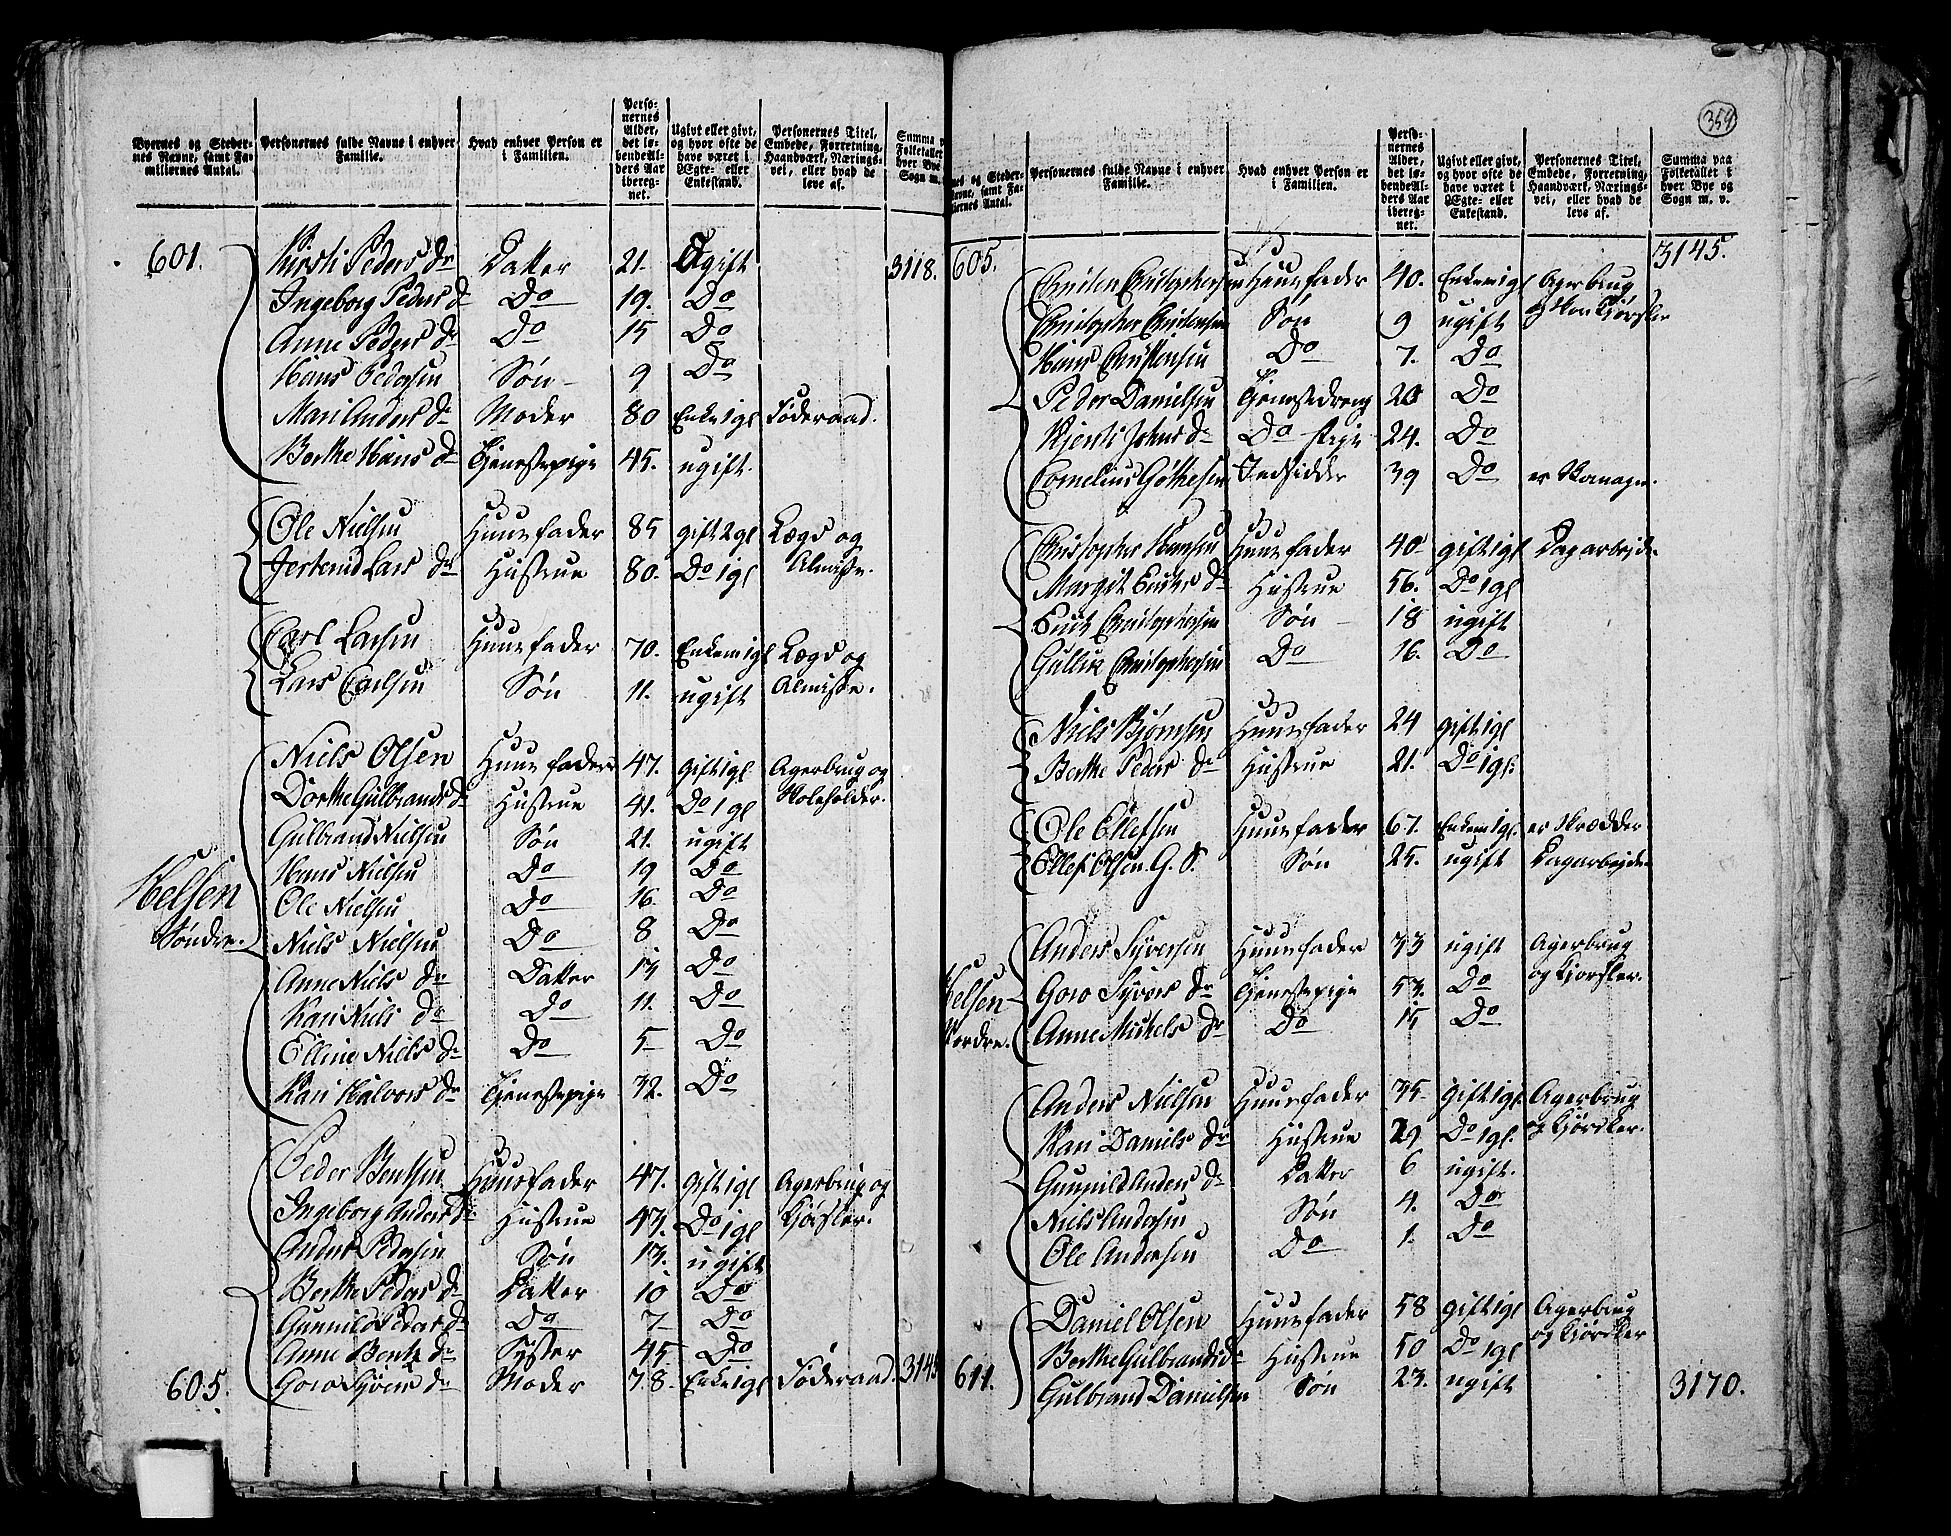 Byernes og Stedernes Navne, samt Familiernes Antal.
Personernes fulde Navne i enhver Familie.
Hvad enhver Person er i Familien.
Personernes Alder, det løbende Alders Aar iberegnet.
Ugivt eller givt, og hvor ofte de have været i Ægte- eller Enkestand.
Personernes Titel, Embede, Forretning, Haandværk, Næringsvei, eller hvad de leve af.
Summa Folketallet hver Bye Sogn m.
601. Kirsti Peders Dr Datter 21. Ugift 3118.
Ingeborg Peders Dr Do 19. Do
Anne Peders Dr Do 15 Do
Hans Pedersen Søn 9 Do
Mari Anders Dr Moder 80 Enke 1gl Føderaad.
Berthe Hans Dr Tjenestepige 45. ugift.
Ole Nielsen Huusfader 85 gift 2gl Lægd og
Jertrud Lars Dr Hustrue 80. Do 1gl Almisse.
Carl Larsen Huusfader 70. Enkem 1gl Lægd og
Lars Carlsen Søn 11. ugift Almisse.
Niels Olsen Huusfader 47. gift 1gl Agerbrug og
Dorthe Gulbrands Dr Hustrue 41. Do 1gl Skoleholder.
Gulbrand Nielsen Søn 21. ugift
Hans Nielsen Do 19 Do
Helsen Ole Nielsen Do 16. Do
Søndre. Niels Nielsen Do 8 Do
Anne Niels Dr Datter 13 Do
Kari Niels Dr Do 11. Do
Elline Niels Dr Do 5 Do
Kari Halvors Dr Tjenestepige 32. Do
Peder Bentsen Huusfader 47. gift 1gl Agerbrug og
Ingeborg Anders Dr Hustrue 43. Do 1gl Kjørsler.
Anders Pedersen Søn 13. ugift
Berthe Peders Dr Datter 10 Do
Gunnild Peders Dr Do 7 Do
Anne Bents Dr Syster 45. Do
605. Goro Syvers Dr Moder 78. Enke 1gl Føderaad. 3145
359
nes og Steder Navne, samt Familiernes Antal.
Personernes fulde Navne i enhver Familie.
Hvad enhver Person er i Familien.
Personernes Alder, det løbende Alders Aar iberegnet.
Ugivt eller givt, og hvor ofte de have været i Ægte- eller Enkestand.
Personernes Titel, Embede, Forretning, Haandværk, Næringsvei, eller hvad de leve af.
Summa paa Folketallet i hver Bye og Sogn m. v.
605. 3145.
Christen Christophersen Huusfader 40. Enkem 1gl Agerbrug
Christopher Christensen Søn 9 ugift og Kjørsler
Hans Christensen Do 7. Do
Peder Danielsen Tjenestedreng 20 Do
Kjersti Johns Dr Do Pige 24. Do
Cornelius Indsidder 39 Do
Christopher Hansen Huusfader 40 gift 1gl Dagarbejder
Margit Eriks Dr Hustrue 56. Do 1gl
Erik Christophersen Søn 18 ugift
Gullik Christophersen Do 16. Do
Niels Bjørnsen Huusfader 24 gift 1gl
Berthe Peders Dr Hustrue 21. Do 1gl.
Ole Ellefsen Huusfader 67. Enkem 1gl. er Skrædder
Ellef Olsen G. S. Søn 25. ugift Dagarbejder
Anders Syversen Huusfader 33 ugift Agerbrug
Helsen Goro Syvers Dr Tjenestepige 53. Do og Kjørsler.
Nordre. Anne Mikels Dr Do 15 Do
Anders Nielsen Huusfader 35 gift 1gl Agerbrug
Kari Daniels Dr Hustrue 29 Do 1gl. og Kjørsler.
Gunnild Anders Dr Datter 6 ugift.
Niels Andersen Søn 4. Do
Ole Andersen Do 1. Do
Daniel Olsen Huusfader 58 gift 1gl Agerbrug
Berthe Gulbrands Dr Hustrue 50 Do 1gl og Kjørsler
611. Gulbrand Danielsen Søn 23. ugift 3170.